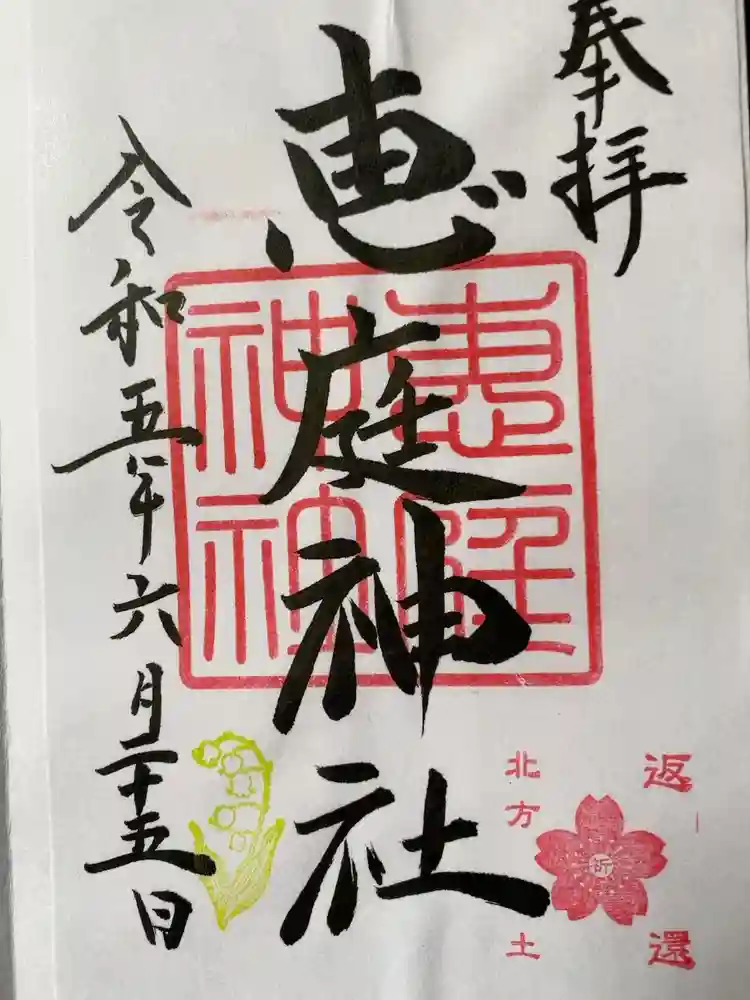 奉拝
恵庭神社
令和五年六月二十五日
恵庭
神社
返還
祈
北方
土